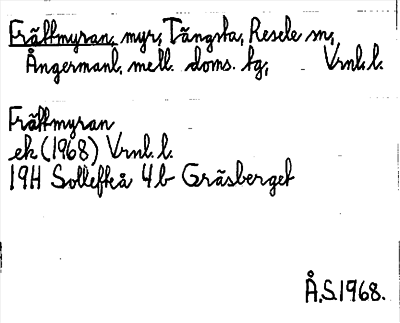 Frättmyran, myr, Tängsta, Resele sn,
Ångermanl. mell. doms. tg, Vrnl. l.
Frättmyran
ek (1968) Vrnl. l.
19H Sollefteå 4b Gräsberget
Å.S.1968.